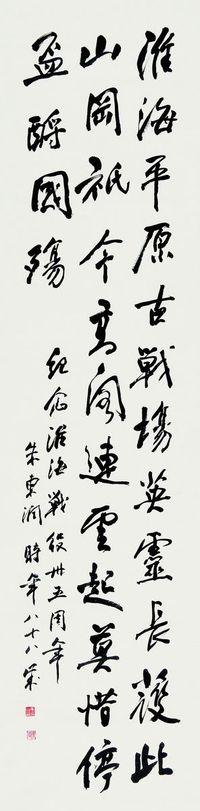 淮海平原古戰場英靈長護此
山岡祇今高閣連雲起莫惜停
盃酹國殤
紀念淮海戰役卅五周年
朱東潤時年八十八歲